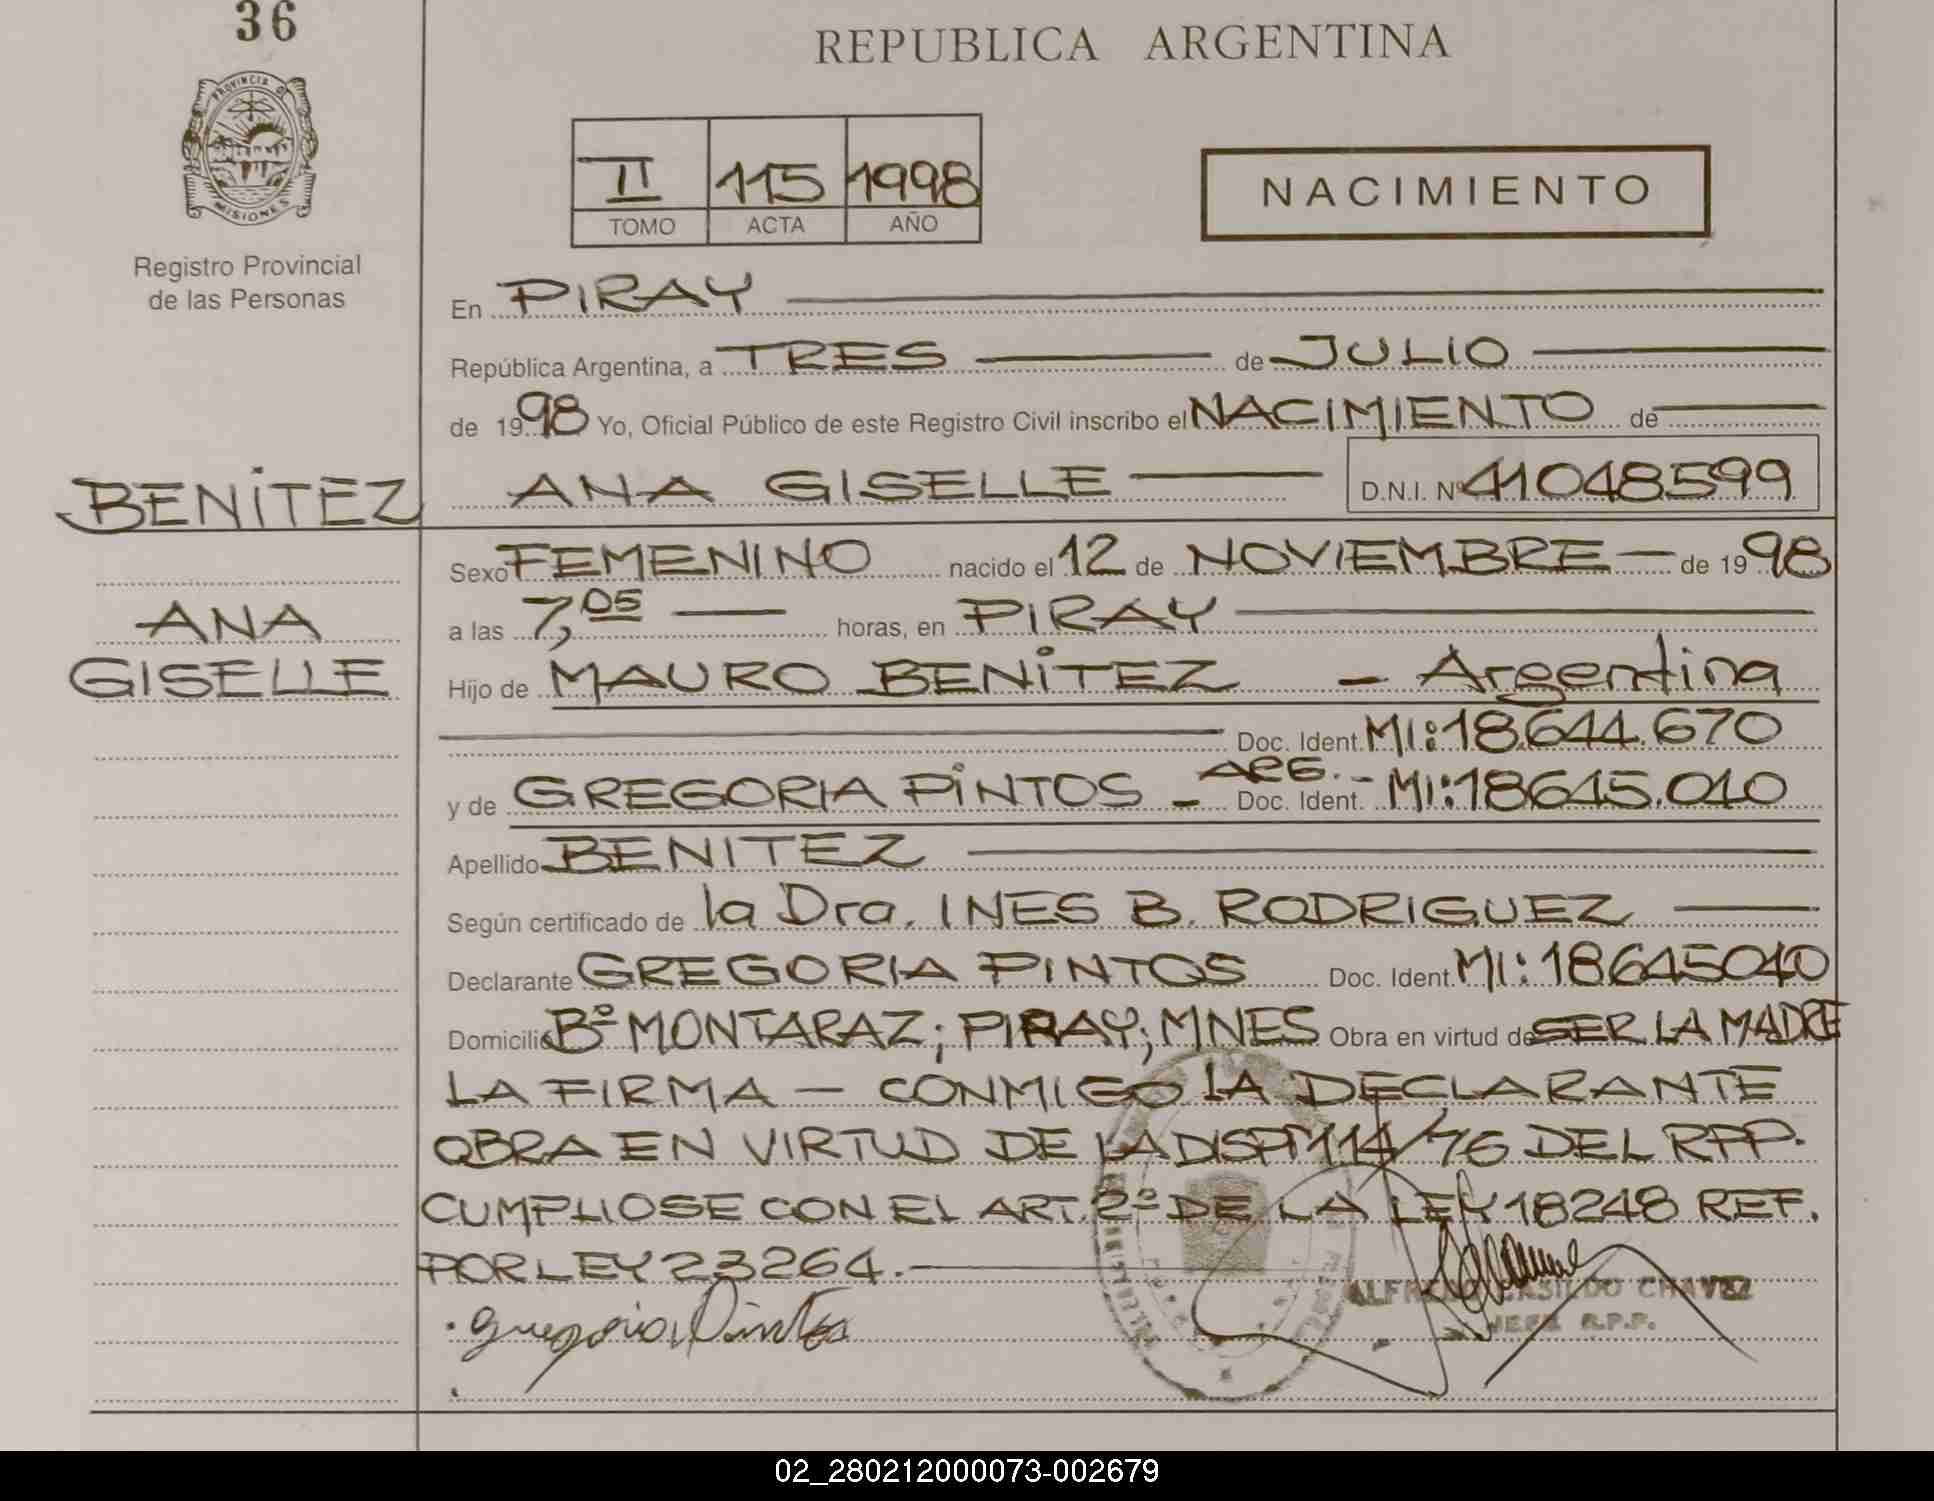 36
REPUBLICA ARGENTINA
PROVINCIA DE
MISIONES
Registro Provincial
de las Personas
II 115 1998
TOMO ACTA AÑO
NACIMIENTO
En PIRAY
República Argentina, a TRES de JULIO
de 1998 Yo, Oficial Público de este Registro Civil inscribo el NACIMIENTO de
BENITEZ ANA GISELLE D.N.I. Nº 41048599
Sexo FEMENINO nacido el 12 de NOVIEMBRE - de 1998
ANA
GISELLE
a las 7,05 horas, en PIRAY
Hijo de MAURO BENITEZ - Argentina
Doc. Ident. MI: 18.644.670
y de GREGORIA PINTOS - ARG. - Doc. Ident. MI: 18645.010
Apellido BENITEZ
Según certificado de la Dra. INES B. RODRIGUEZ
Declarante GREGORIA PINTOS Doc. Ident. MI: 18645010
Domicilio Bº MONTARAZ; PIRAY; MNES Obra en virtud de SER LA MADRE
LA FIRMA - CONMIGO LA DECLARANTE
OBRA EN VIRTUD DE LA DISP 114/76 DEL RPP.
CUMPLIOSE CON EL ART. 2º DE LA LEY 18248 REF.
POR LEY 23264.
Gregoria Pintos
ALFREDO CASILDO CHAVEZ
JEFE R.P.P.
02_280212000073-002679